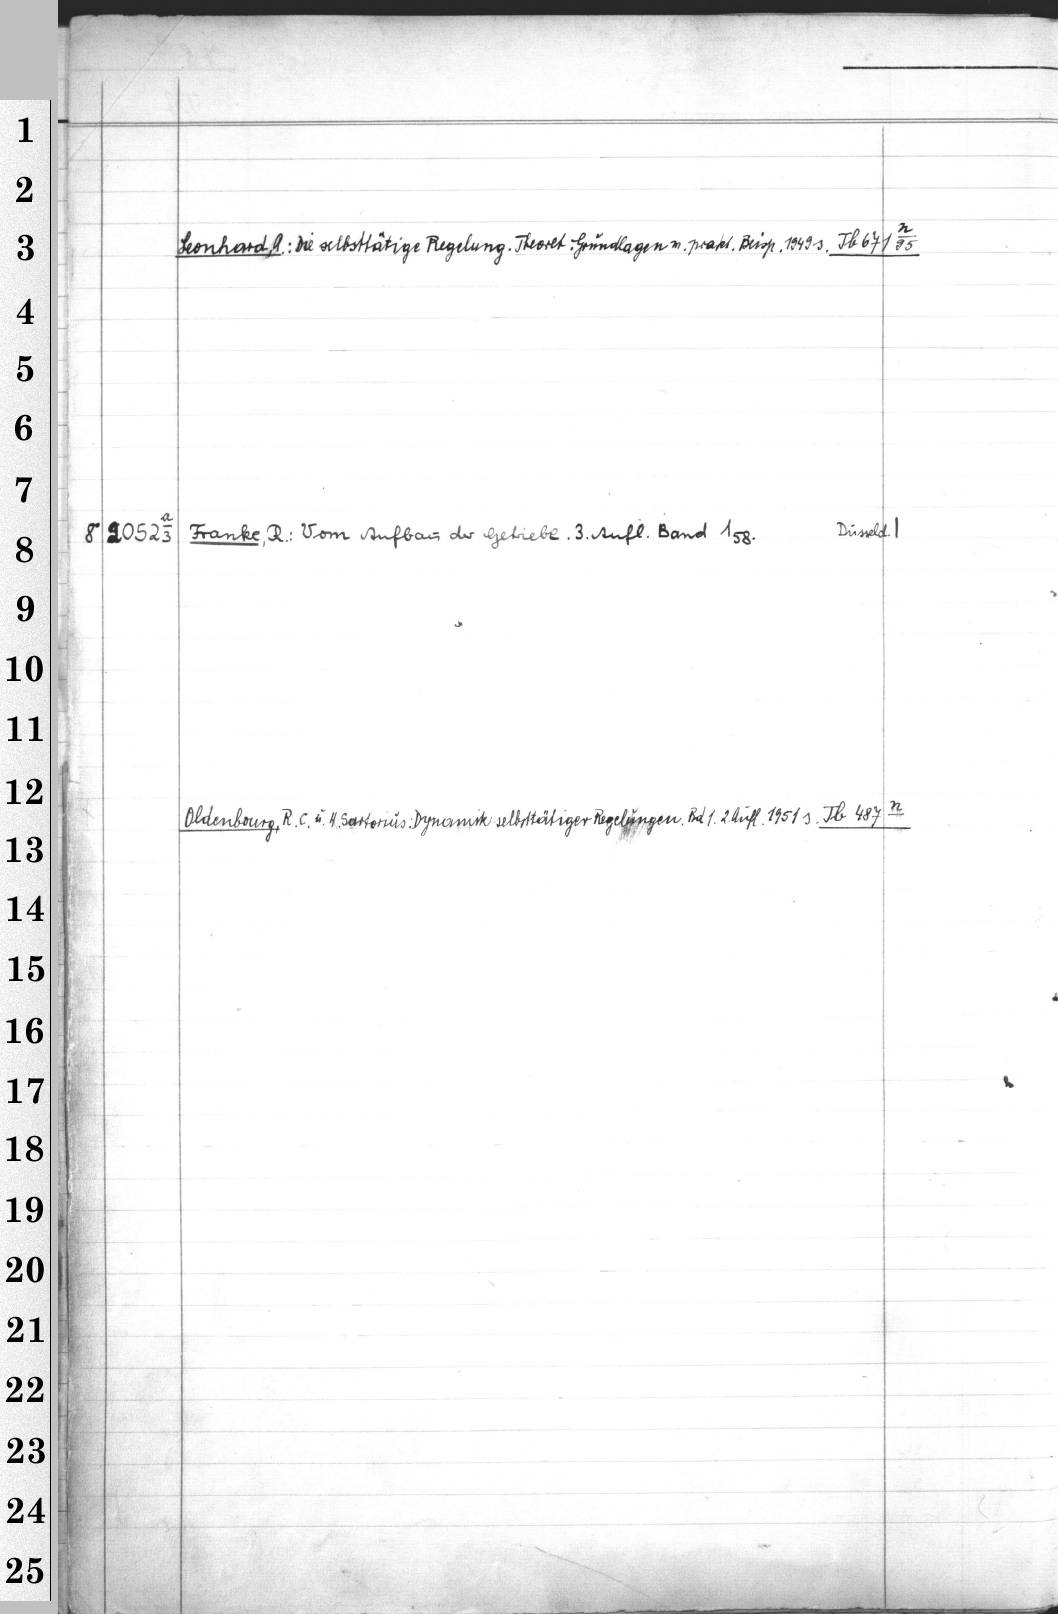 1
2
3 Leonhard, A.: Die selbsttätige Regelung. Theoret. Grundlagen m. prakt. Beisp. 1949 s. Tb 671 n/95
4
5
6
7
8 8° 20523 a/3 Franke, R.: Vom Aufbau der Getriebe. 3. Aufl. Band 1 58. Düsseld. 1
9
10
11
12
13 Oldenbourg, R. C. u. H. Sartorius: Dynamik selbsttätiger Regelungen. Bd 1. 2 Aufl. 1951 s. Tb 487 n
14
15
16
17
18
19
20
21
22
23
24
25